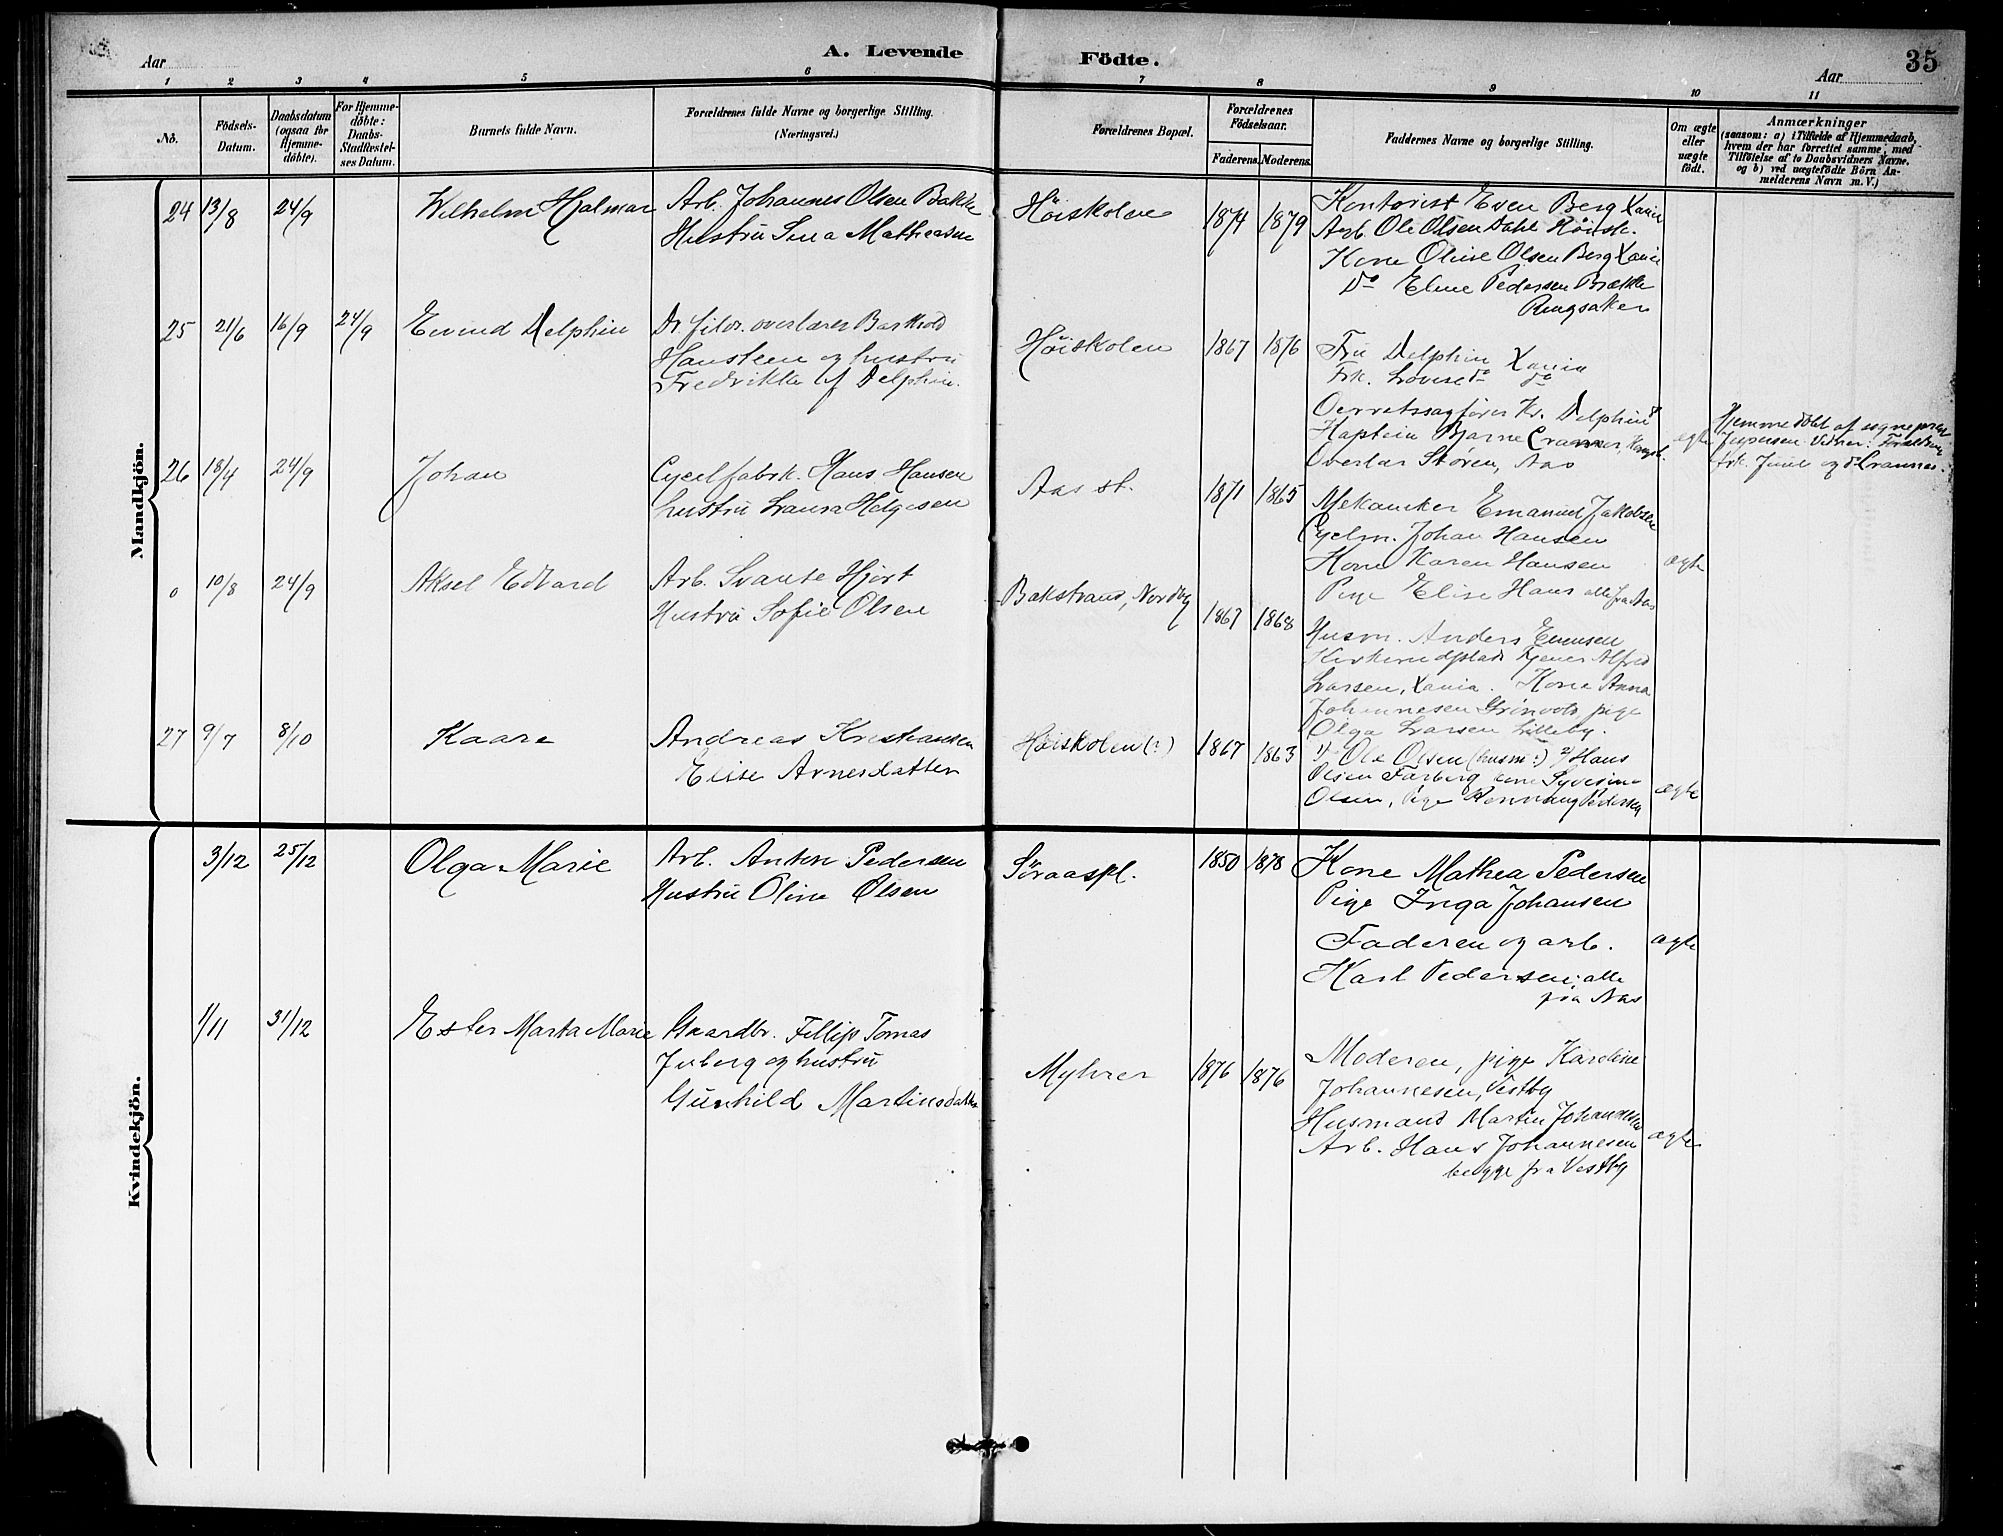 A. Levende Födte.
35
Aar
Aar
1 2 3 4 5 6 7 8 9 10 11
No.
Födsels-Datum.
Daabsdatum (ogsaa for Hjemme-döbte).
For Hjemme-döbte: Daabs-Stadfestel-ses Datum.
Barnets fulde Navn.
Forældrenes fulde Navne og borgerlige Stilling.
(Næringsvei.)
Forældrenes Bopæl.
Forældrenes Födselsaar.
Faderens. Moderens.
Faddernes Navne og borgerlige Stilling.
Om ægte eller uægte födt.
Anmærkninger
(saasom: a) i Tilfælde af Hjemmedaab,
hvem der har forrettet samme, med
Tilföielse af to Daabsvidners Navne,
og b) ved uægtefödte Börn An-
melderens Navn m. V.)
Mandkjön.
24 13/8 24/9 Wilhelm Hjalmar
Arb. Johannes Olsen Bakke
Hustru Sina Mathiesen
Höiskolen 1874 1879
Kontorist Even Berg Xania
Arb. Ole Olsen Dahl Höisk.
Kone Oline Olsen Berg Xania
Do Eline Pedersen Brække
Ringsaker
25 21/6 16/9 24/9 Eivind Delphin
Dr. filos. overlærer Barthold
Hansteen og hustru
Fredrikke f Delphin.
Höiskolen 1867 1876
Fru Delphin Xania
Frk. Lovise do do
Overretssagförer Kr. Delphin
Kaptein Bjarne Cranner,
Overlær Stören, Aas
ægte
Hjemmedöbt af sognepræst
Jespersen Vidner: Forældrene
frk. Juul og
26 18/4 24/9 Johan
Cycelfabrk. Hans Hansen
hustru Laura Helgesen
Aas st. 1871 1865
Mekaniker Emanuel Jakobsen
Cyclm. Johan Hansen
Kone Karen Hansen
Pige Elise Hans alle fra Aas
ægte
0 10/8 24/9 Aksel Edvard
Arb. Svante Hjort
Hustru Sofie Olsen
Bakstrand, Nordby 1867 1868
Husm. Anders Evensen
Kirkerudplads Tjener Alfred
Larsen, Xania. Kone Anna
Johannesen Grönvold, pige
Olga Larsen Lilleby.
27 9/7 8/10 Kaare
Andreas Kristiansen
Elise Arnesdatter
Höiskolen (?) 1867 1863
1) Ole Olsen (husm:) 2) Hans
Olsen Farberg kone
Olsen, Pige Pedersen
ægte
Kvindekjön.
3/12 25/12 Olga Marie
Arb. Anton Pedersen
Hustru Oline Olsen
Söraaspl. 1850 1878
Kone Mathea Pedersen
Pige Inga Johansen
Faderen og arb.
Karl Pedersen; alle
fra Aas
ægte
1/11 31/12 Ester Marta Marie
Gaardbr. Fillip Tomas
Juberg og hustru
Gunhild Martinsdatter
Myhrer 1876 1876
Moderen, pige Karoline
Johannesen, Vestby
Husmand Martin Johannesen
Arb. Hans Johannesen
begge fra Vestby
ægte